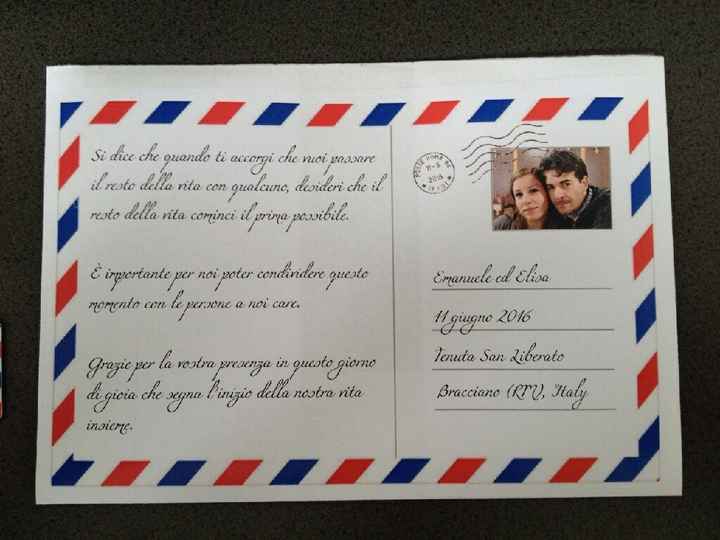 Si dice che quando ti accorgi che vuoi passare
il resto della vita con qualcuno, desideri che il
resto della vita cominci il prima possibile.
È importante per noi poter condividere questo
momento con le persone a noi care.
Grazie per la vostra presenza in questo giorno
di gioia che segna l'inizio della nostra vita
insieme.
Emanuele ed Elisa
11 giugno 2016
Tenuta San Liberato
Bracciano (RM), Italy